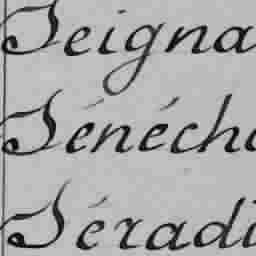 Seigna
Sénécha
Séradi